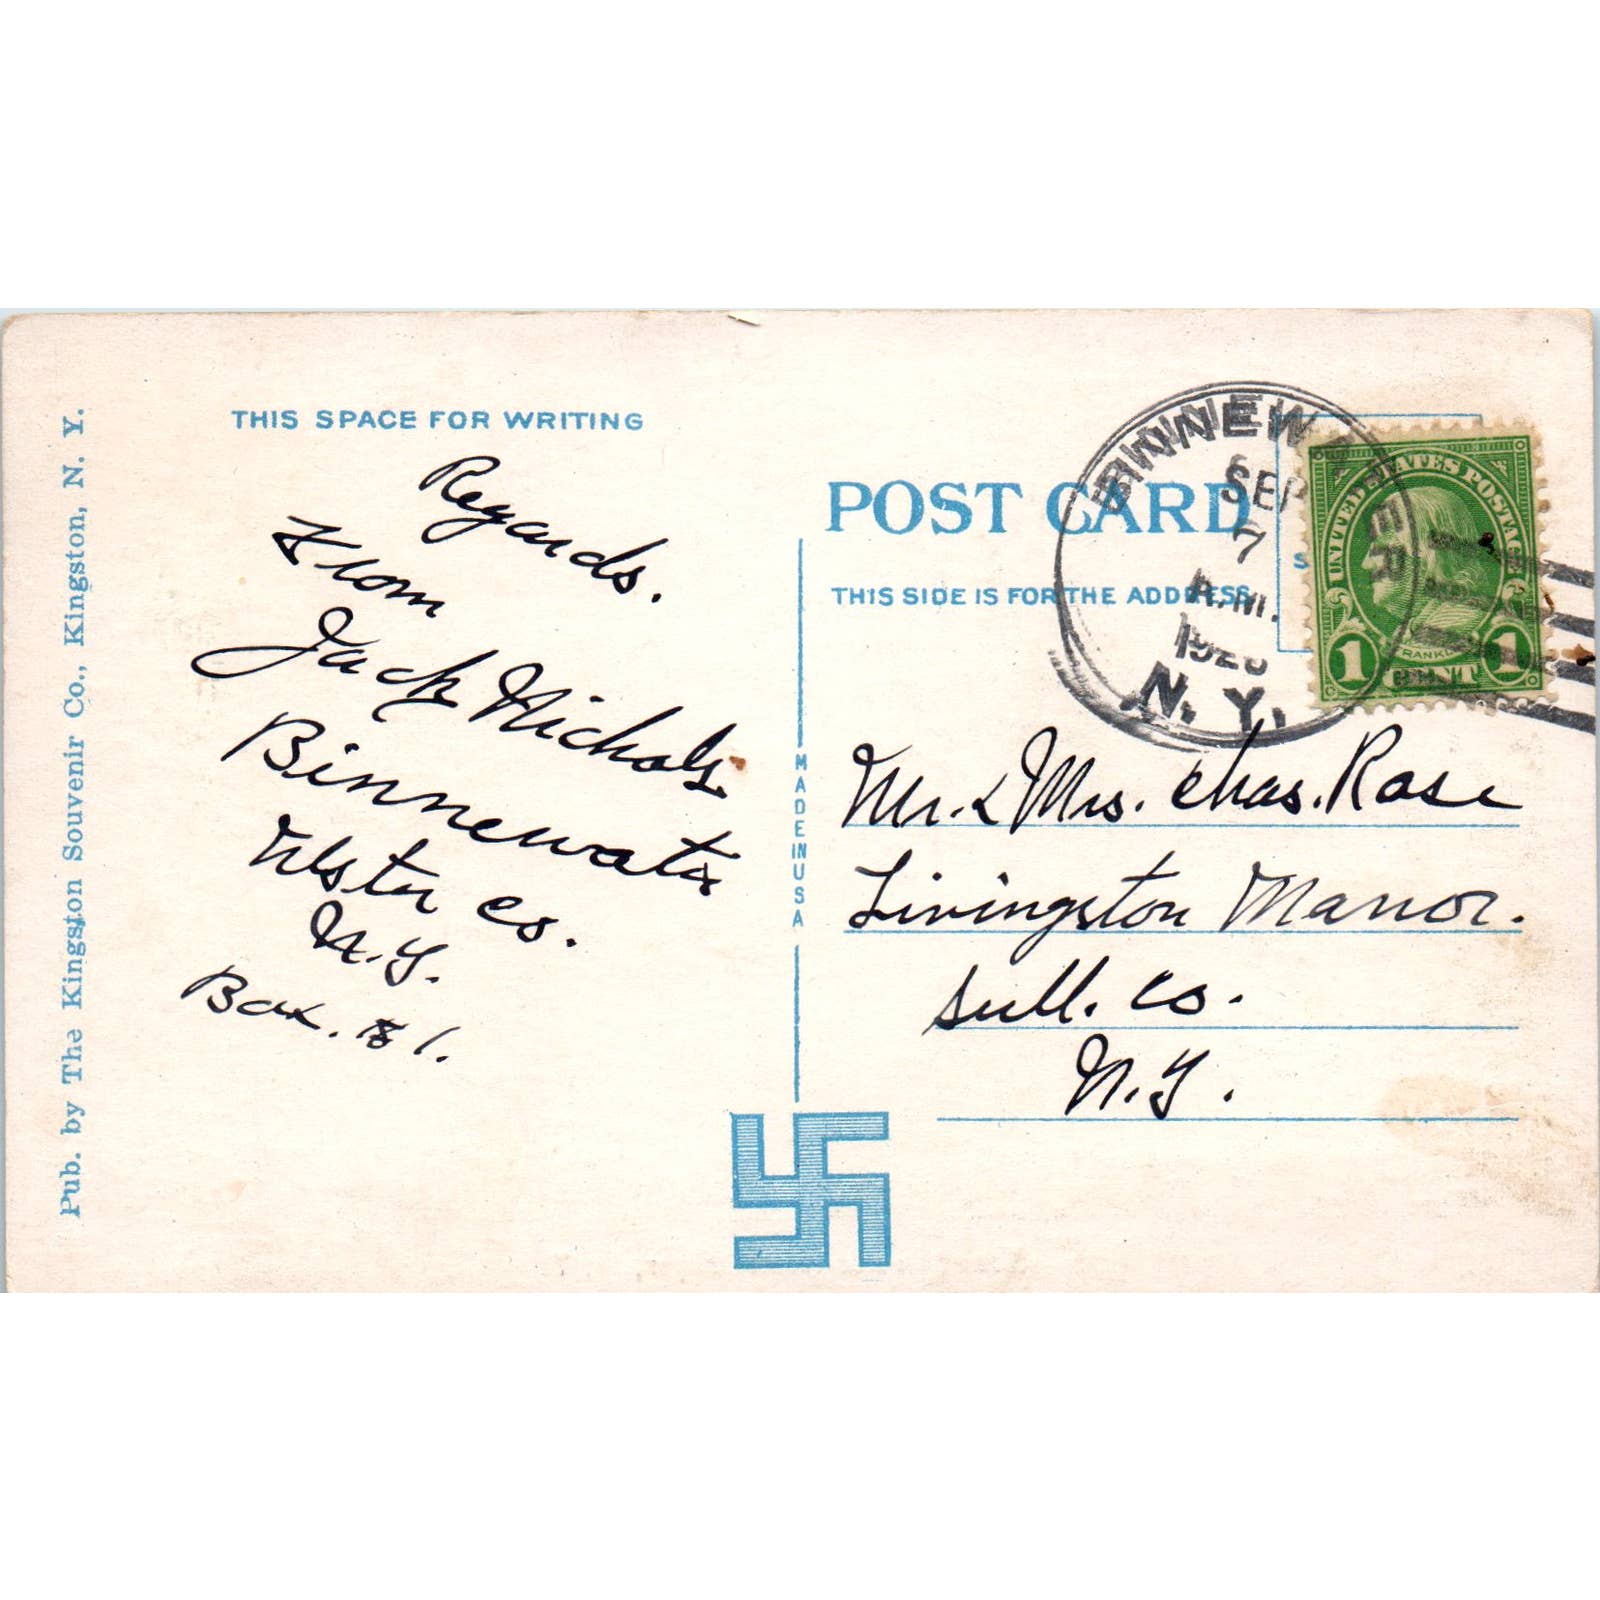 Pub. by The Kingston Souvenir Co., Kingston, N. Y.
THIS SPACE FOR WRITING
Regards.
From
Jack Nichols
Binnewater
Ulster Co.
N.Y.
Box. 81.
MADE IN USA
POST CARD
THIS SIDE IS FOR THE ADDRESS
BINNEWATER
SEP
7
A.M.
N. Y.
UNITED STATES POSTAGE
FRANKLIN
1 CENT 1
Mr. & Mrs. Chas. Rose
Livingston Manor.
Sull. Co.
N.Y.